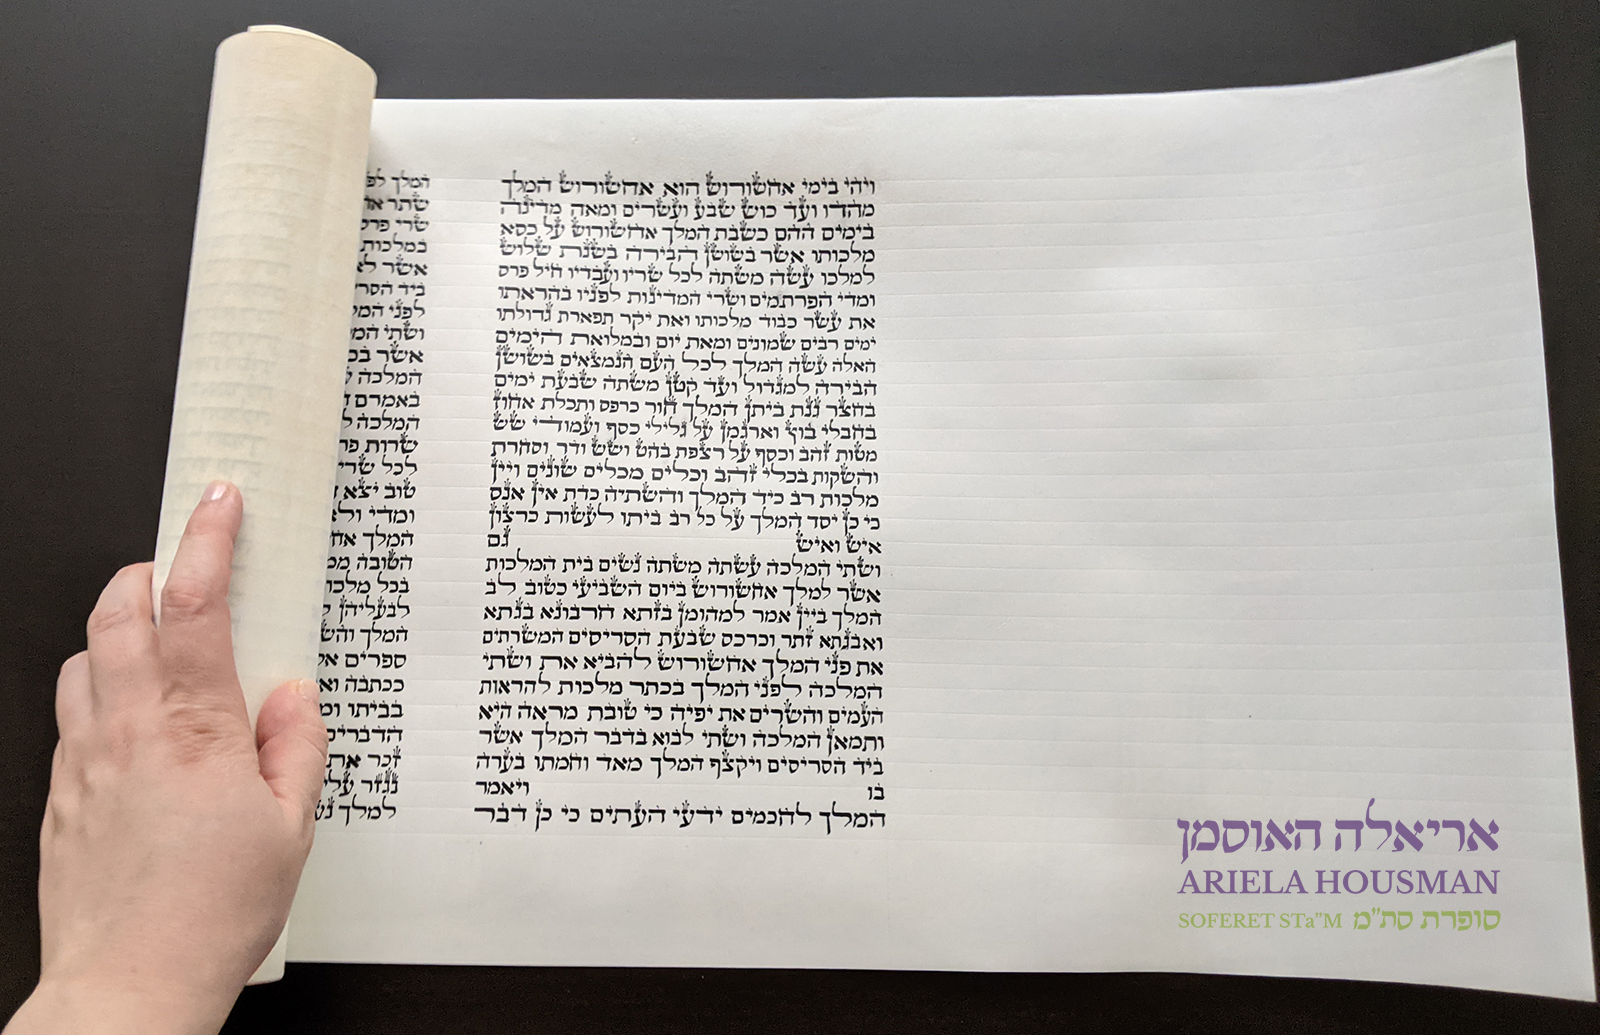 ויהי בימי אחשורוש הוא אחשורוש המלך
מהדו ועד כוש שבע ועשרים ומאה מדינה
בימים ההם כשבת המלך אחשורוש על כסא
מלכותו אשר בשושן הבירה בשנת שלוש
למלכו עשה משתה לכל שריו ועבדיו חיל פרס
ומדי הפרתמים ושרי המדינות לפניו בהראתו
את עשר כבוד מלכותו ואת יקר תפארת גדולתו
ימים רבים שמונים ומאת יום ובמלואת הימים
האלה עשה המלך לכל העם הנמצאים בשושן
הבירה למגדול ועד קטן משתה שבעת ימים
בחצר גנת ביתן המלך חור כרפס ותכלת אחוז
בחבלי בוץ וארגמן על גלילי כסף ועמודי שש
מטות זהב וכסף על רצפת בהט ושש ודר וסחרת
והשקות בכלי זהב וכלים מכלים שונים ויין
מלכות רב כיד המלך והשתיה כדת אין אנס
כי כן יסד המלך על כל רב ביתו לעשות כרצון
איש ואיש גם
ושתי המלכה עשתה משתה נשים בית המלכות
אשר למלך אחשורוש ביום השביעי כטוב לב
המלך ביין אמר למהומן בזתא חרבונא בגתא
ואבגתא זתר וכרכס שבעת הסריסים המשרתים
את פני המלך אחשורוש להביא את ושתי
המלכה לפני המלך בכתר מלכות להראות
העמים והשרים את יפיה כי טובת מראה היא
ותמאן המלכה ושתי לבוא בדבר המלך אשר
ביד הסריסים ויקצף המלך מאד וחמתו בערה
בו ויאמר
המלך לחכמים ידעי העתים כי כן דבר
המלך
שתר
שרי
במלכות
אשר
ביד
לפני
ושתי
אשר
המלכה
באמרם
המלכה
שרות
לכל
טוב יצא
ומדי
המלך
הטובה
בכל
לבעליהן
המלך
ספרים
ככתבה
בביתו
הדברים
זכר את
נגזר
למלך
אריאלה האוסמן
ARIELA HOUSMAN
SOFERET STa"M סופרת סת"מ